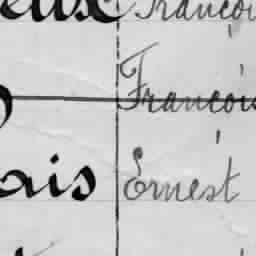 eux Françoi
Françoi
ais Ernest